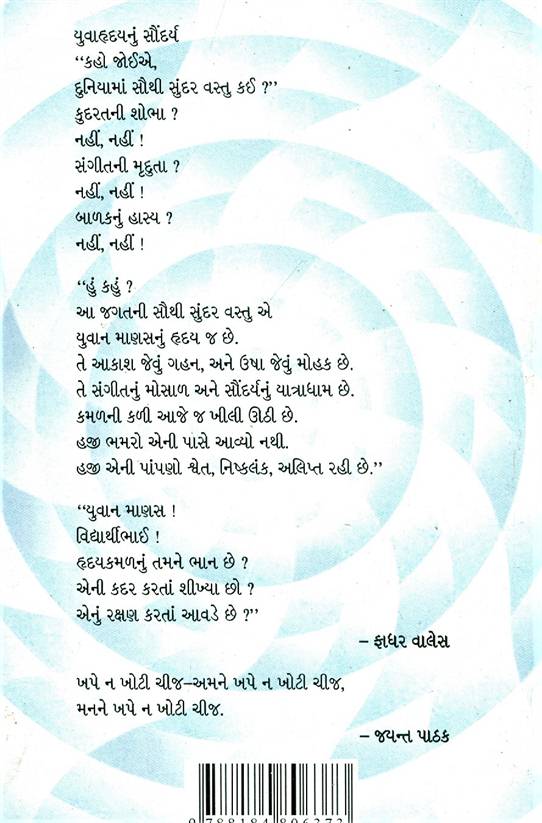 યુવાહૃદયનું સૌંદર્ય
“કહો જોઈએ,
દુનિયામાં સૌથી સુંદર વસ્તુ કઈ ?”
કુદરતની શોભા ?
નહીં, નહીં !
સંગીતની મૃદુતા ?
નહીં, નહીં !
બાળકનું હાસ્ય ?
નહીં, નહીં !
“હું કહું ?
આ જગતની સૌથી સુંદર વસ્તુ એ
યુવાન માણસનું હૃદય જ છે.
તે આકાશ જેવું ગહન, અને ઉષા જેવું મોહક છે.
તે સંગીતનું મોસાળ અને સૌંદર્યનું યાત્રાધામ છે.
કમળની કળી આજે જ ખીલી ઊઠી છે.
હજી ભમરો એની પાસે આવ્યો નથી.
હજી એની પાંપણો શ્વેત, નિષ્કલંક, અલિપ્ત રહી છે.”
“યુવાન માણસ !
વિદ્યાર્થીભાઈ !
હૃદયકમળનું તમને ભાન છે ?
એની કદર કરતાં શીખ્યા છો ?
એનું રક્ષણ કરતાં આવડે છે ?”
– ફાધર વાલેસ
ખપે ન ખોટી ચીજ–અમને ખપે ન ખોટી ચીજ,
મનને ખપે ન ખોટી ચીજ.
– જયન્ત પાઠક
9 788184 806373